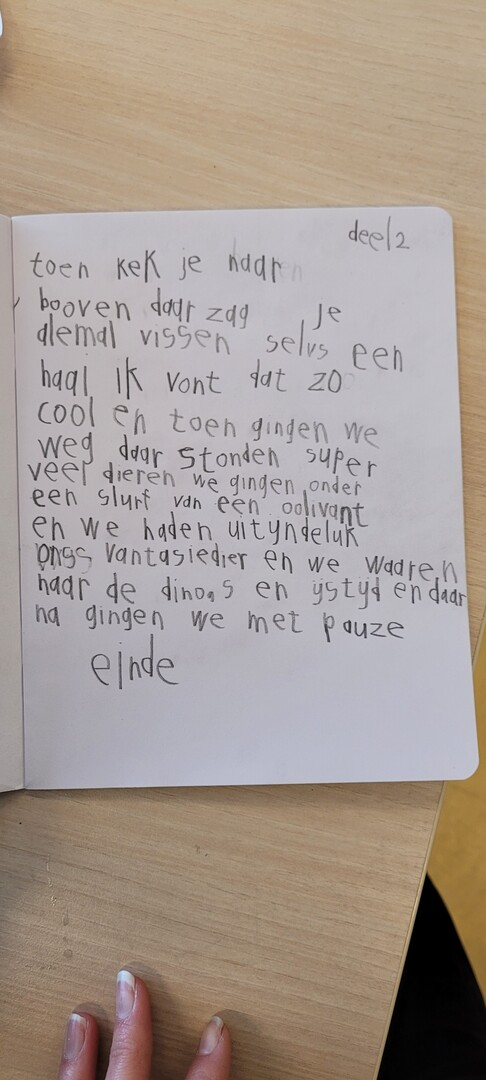 deel 2
toen kek je naar
booven daar zag je
alemal vissen selvs een
haai ik vont dat zo
cool en toen gingen we
weg daar stonden super
veel dieren we gingen onder
een slurf van een oolivant
en we haden uityndeluk
onss vantasiedier en we waaren
naar de dinoas en ijstyd en daar
na gingen we met pauze
einde